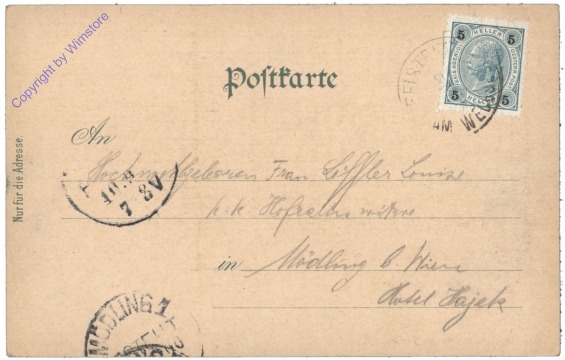 Copyright by Wimstore
Postkarte
5 HELLER 5
5 5
FEISTRITZ AM WECHSEL
Nur für die Adresse.
An
Hochwohlgeboren Frau Löffler Louise
k. k. Hofraths witwe
in Mödling b. Wien
Hotel Hajek
10.9
7 8V
MÖDLING 1